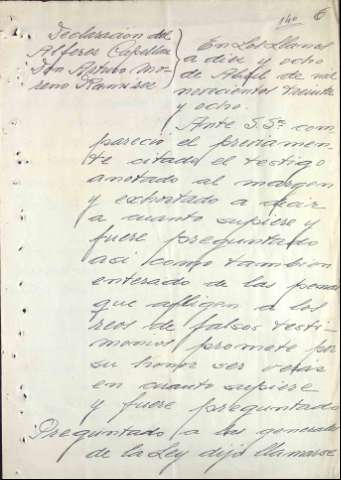 140 6
Declaracion del
Alferez Capellan
Don Arturo Mo-
reno Ramirez
En Los Llanos
a diez y ocho
de Abril de mil
novecientos treinta
y ocho.
Ante S.Sª com
pareció el previamen-
te citado el testigo
anotado al margen
y exhortado a decir
a cuanto supiere y
fuere preguntado
asi como tambien
enterado de las penas
que afligen a los
reos de falsos testi-
monios promete por
su honor ser veraz
en cuanto supiere
y fuere preguntado
Preguntado a las generales
de la Ley dijo llamarse